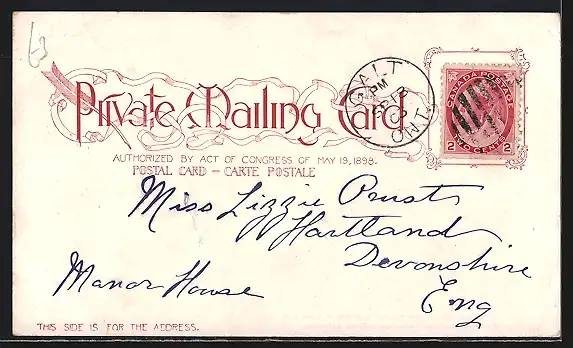 63
Private Mailing Card
AUTHORIZED BY ACT OF CONGRESS OF MAY 19, 1898.
POSTAL CARD — CARTE POSTALE
GALT
PM
ONT
CANADA POSTAGE
2 CENTS 2
Miss Lizzie Prust
Hartland
Devonshire
Manor House
Eng
THIS SIDE IS FOR THE ADDRESS.